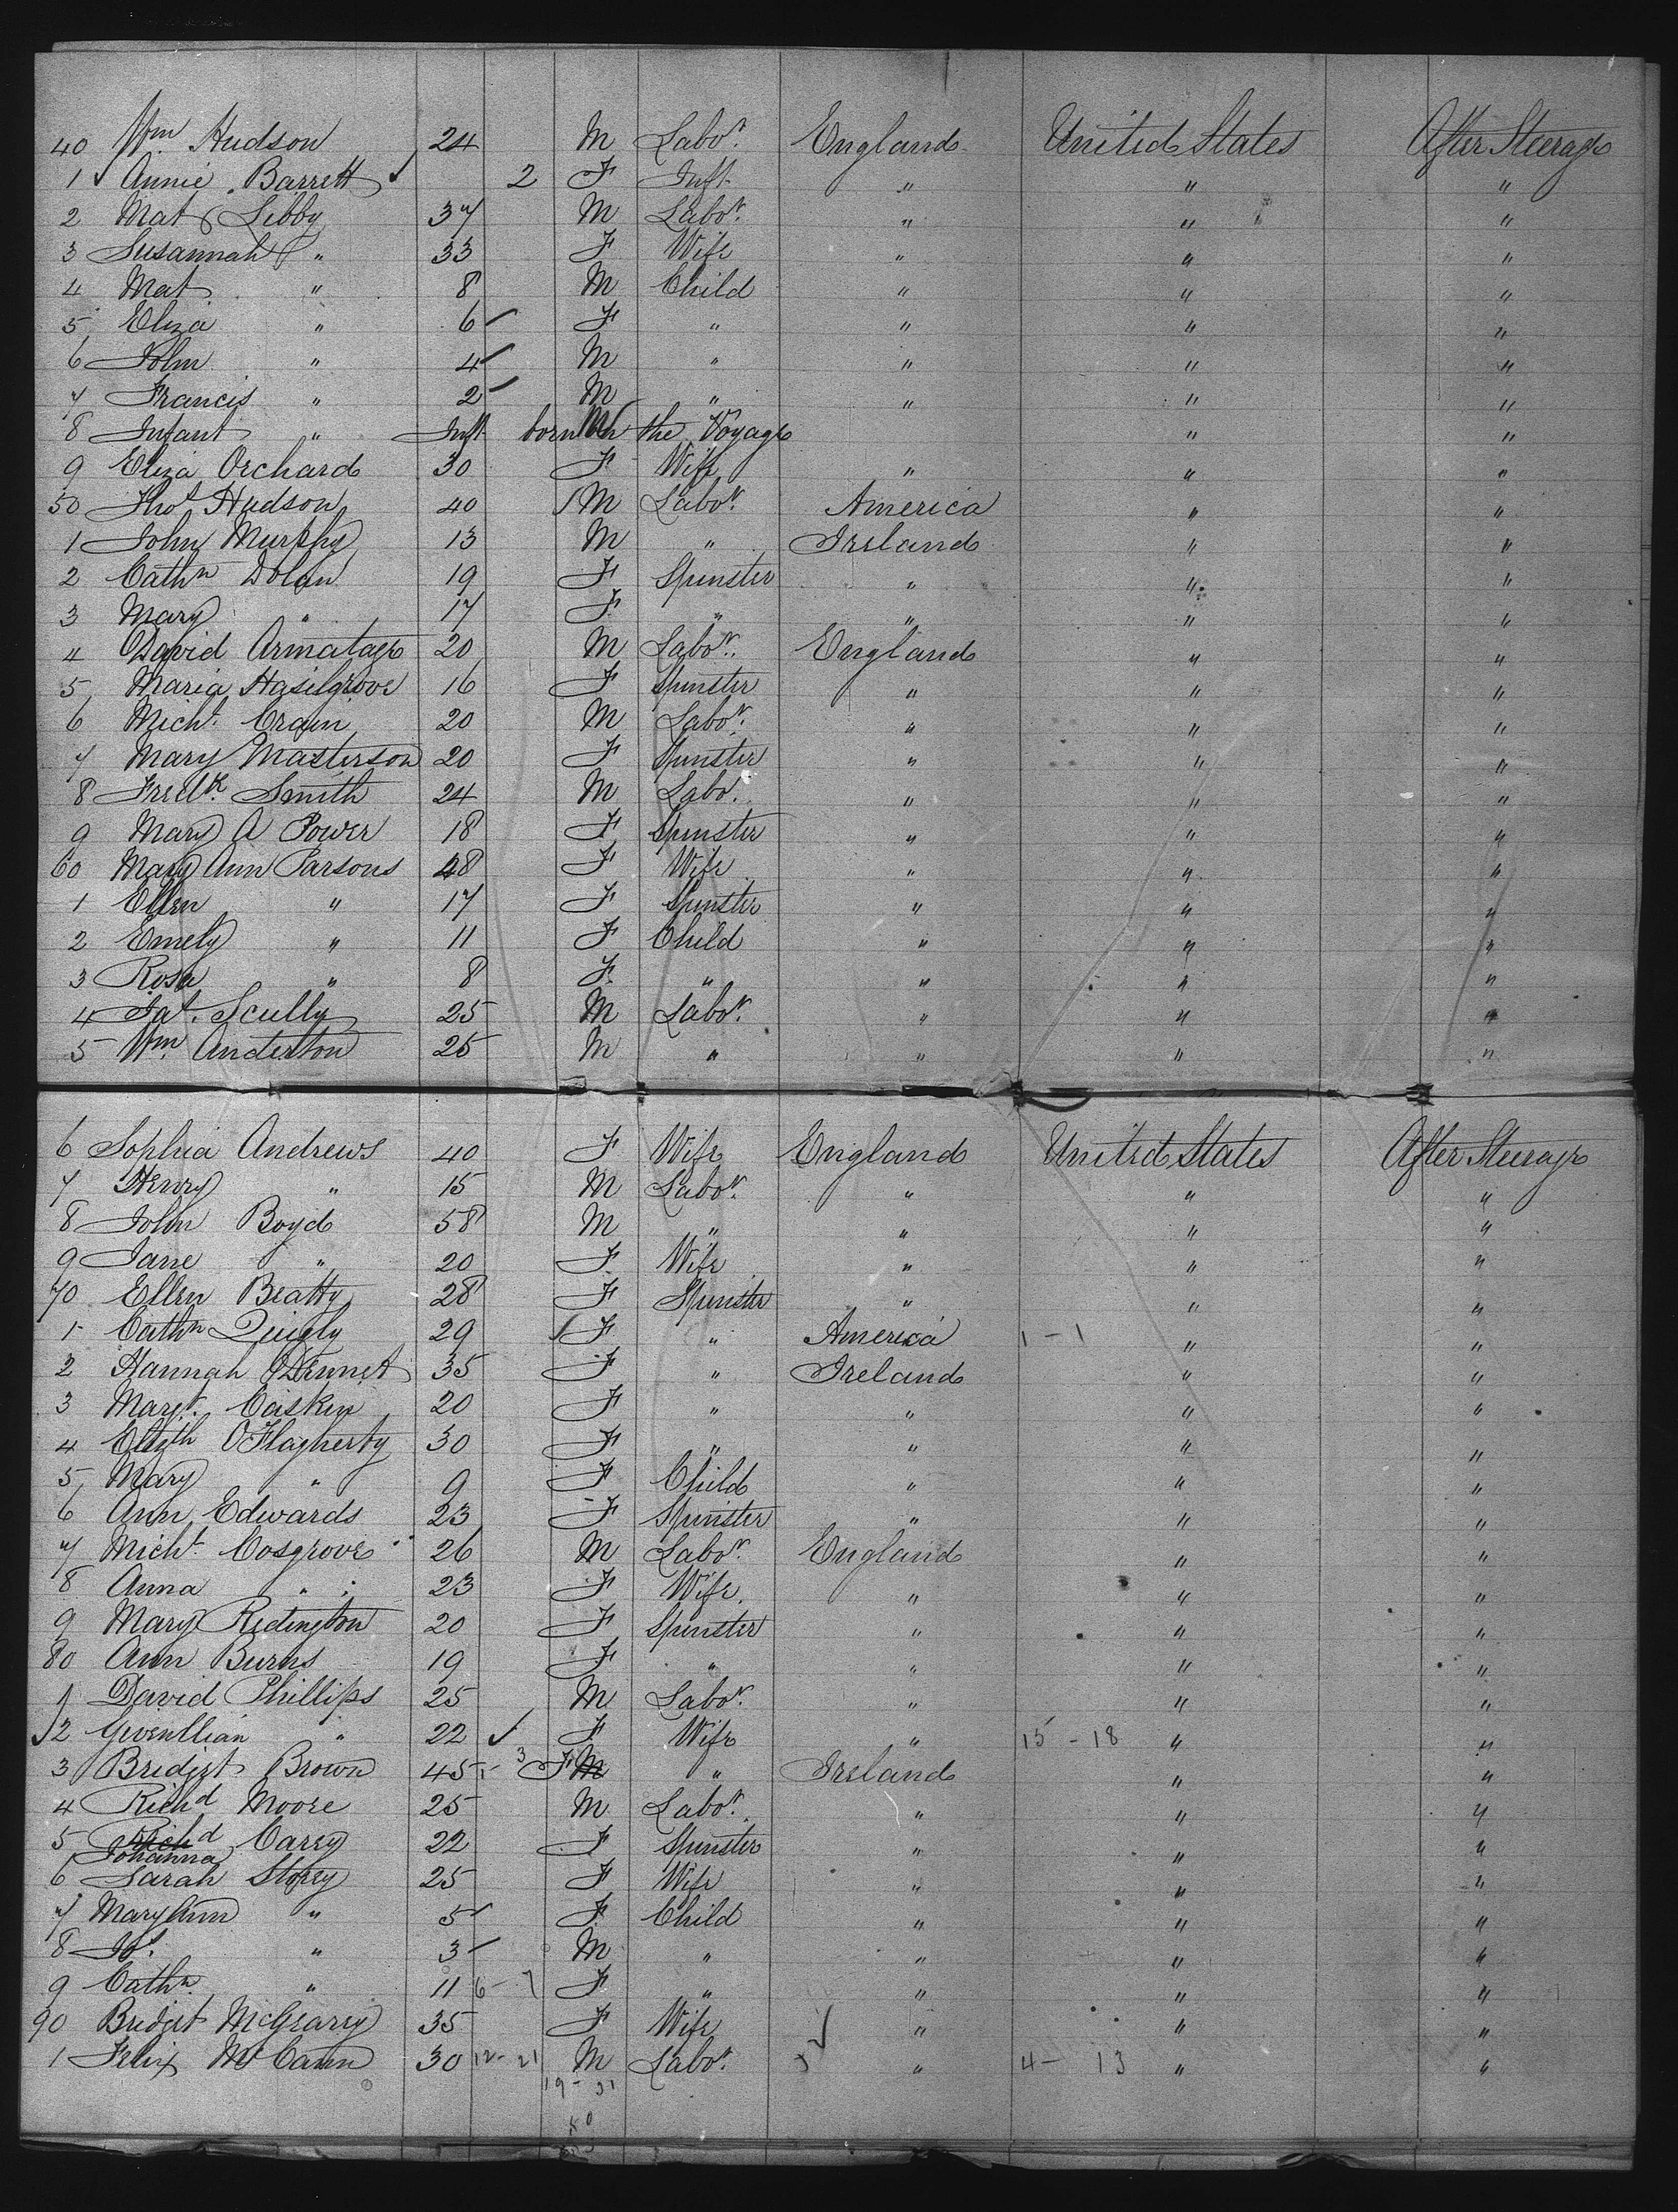 40 Wm Hudson 24 M Labor. England United States After Steerage
1 Annie Barrett 2 F Inft " " "
2 Mat Libby 37 M Labor. " " "
3 Susannah " 33 F Wife " " "
4 Mat " 8 M Child " " "
5 Eliza " 6 F " " " "
6 John " 4 M " " " "
7 Francis " 2 M " " " "
8 Infant " Inft born on the Voyage " "
9 Eliza Orchard 30 F Wife " " "
50 Thos Hudson 40 M Labor. America " "
1 John Murphy 13 M " Ireland " "
2 Cathn Dolan 19 F Spinster " " "
3 Mary " 17 F " " " "
4 David Armatage 20 M Labor. England " "
5 Maria Hasilgrove 16 F Spinster " " "
6 Michl. Crain 20 M Labor. " " "
7 Mary Masterson 20 F Spinster " " "
8 Fredk. Smith 24 M Labo. " " "
9 Mary A Power 18 F Spinster " " "
60 Mary Ann Parsons 48 F Wife " " "
1 Ellen " 17 F Spinster " " "
2 Emely " 11 F Child " " "
3 Rosa " 8 F " " " "
4 Jas. Scully 25 M Labor. " " "
5 Wm. Anderton 25 M " " " "
6 Sophia Andrews 40 F Wife England United States After Steerage
7 Henry " 15 M Labor. " " "
8 John Boyd 58 M " " " "
9 Jane " 20 F Wife " " "
70 Ellen Beatty 28 F Spinster " " "
1 Cathn Quigly 29 F " America 1 - 1 " "
2 Hannah Dennet 35 F " Ireland " "
3 Margt. Caskey 20 F " " " "
4 Elizth OFlagherty 30 F " " " "
5 Mary " 9 F Child " " "
6 Ann Edwards 23 F Spinster " " "
7 Michl. Cosgrove 26 M Labor. England " "
8 Anna " 23 F Wife. " " "
9 Mary Redington 20 F Spinster " " "
80 Ann Burns 19 F " " " "
1 David Phillips 25 M Labor. " " "
2 Gwenllian " 22 F Wife " 15 - 18 " "
3 Bridget Brown 45 3 F M " Ireland " "
4 Richd Moore 25 M Labor. " " "
5 Richd Carey 22 F Spinster " " "
Johanna
6 Sarah Storey 25 F Wife " " "
7 Mary Ann " 5 F Child " " "
8 " 3 M " " " "
9 Cathn. " 11 6 - 7 F " " " "
90 Bridget McGeary 35 F Wife " " "
1 Felix McCann 30 12 - 21 M Labor. " 4 - 13 " "
19 - 31